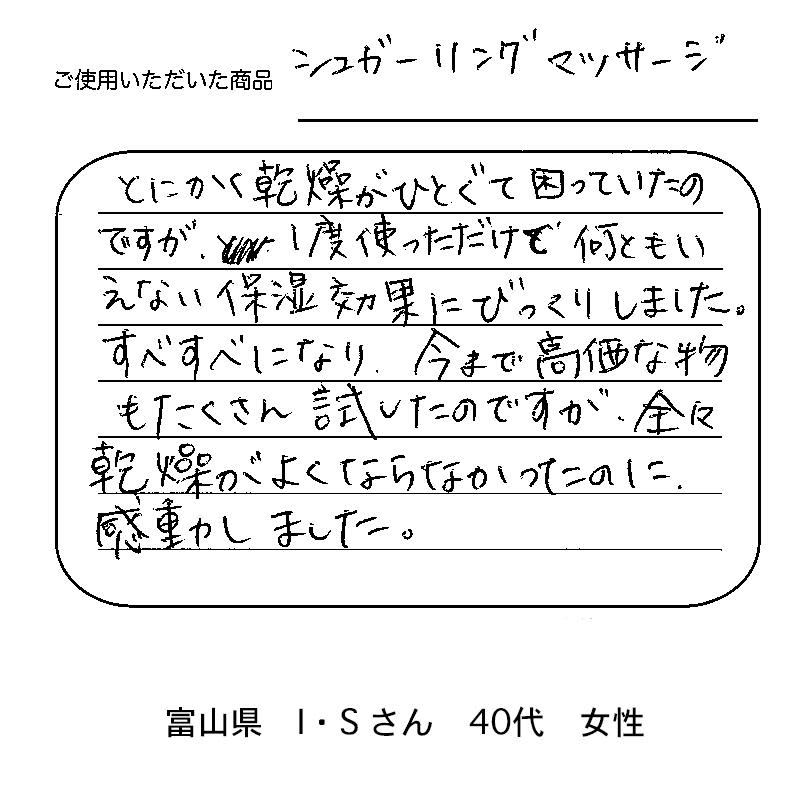 ご使用いただいた商品 シュガーリングマッサージ
とにかく乾燥がひどくて困っていたの
ですが、1度使っただけで何ともい
えない保湿効果にびっくりしました。
すべすべになり、今まで高価な物
もたくさん試したのですが、全々
乾燥がよくならなかったのに、
感動しました。
富山県 I・Sさん 40代 女性